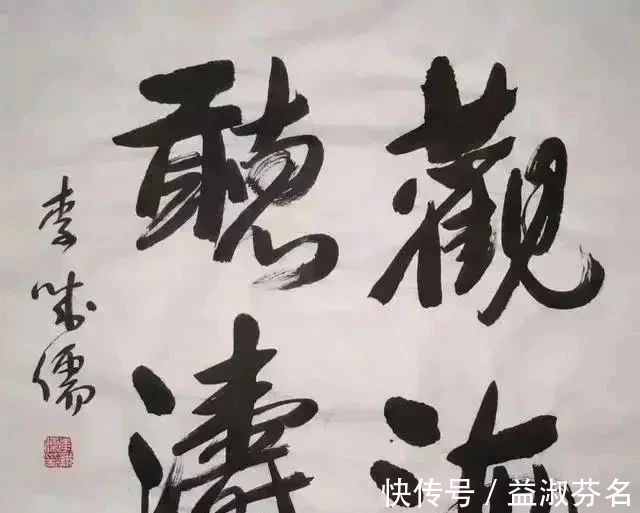 觀海
聽濤
李诚儒
快传号/益淑芬名